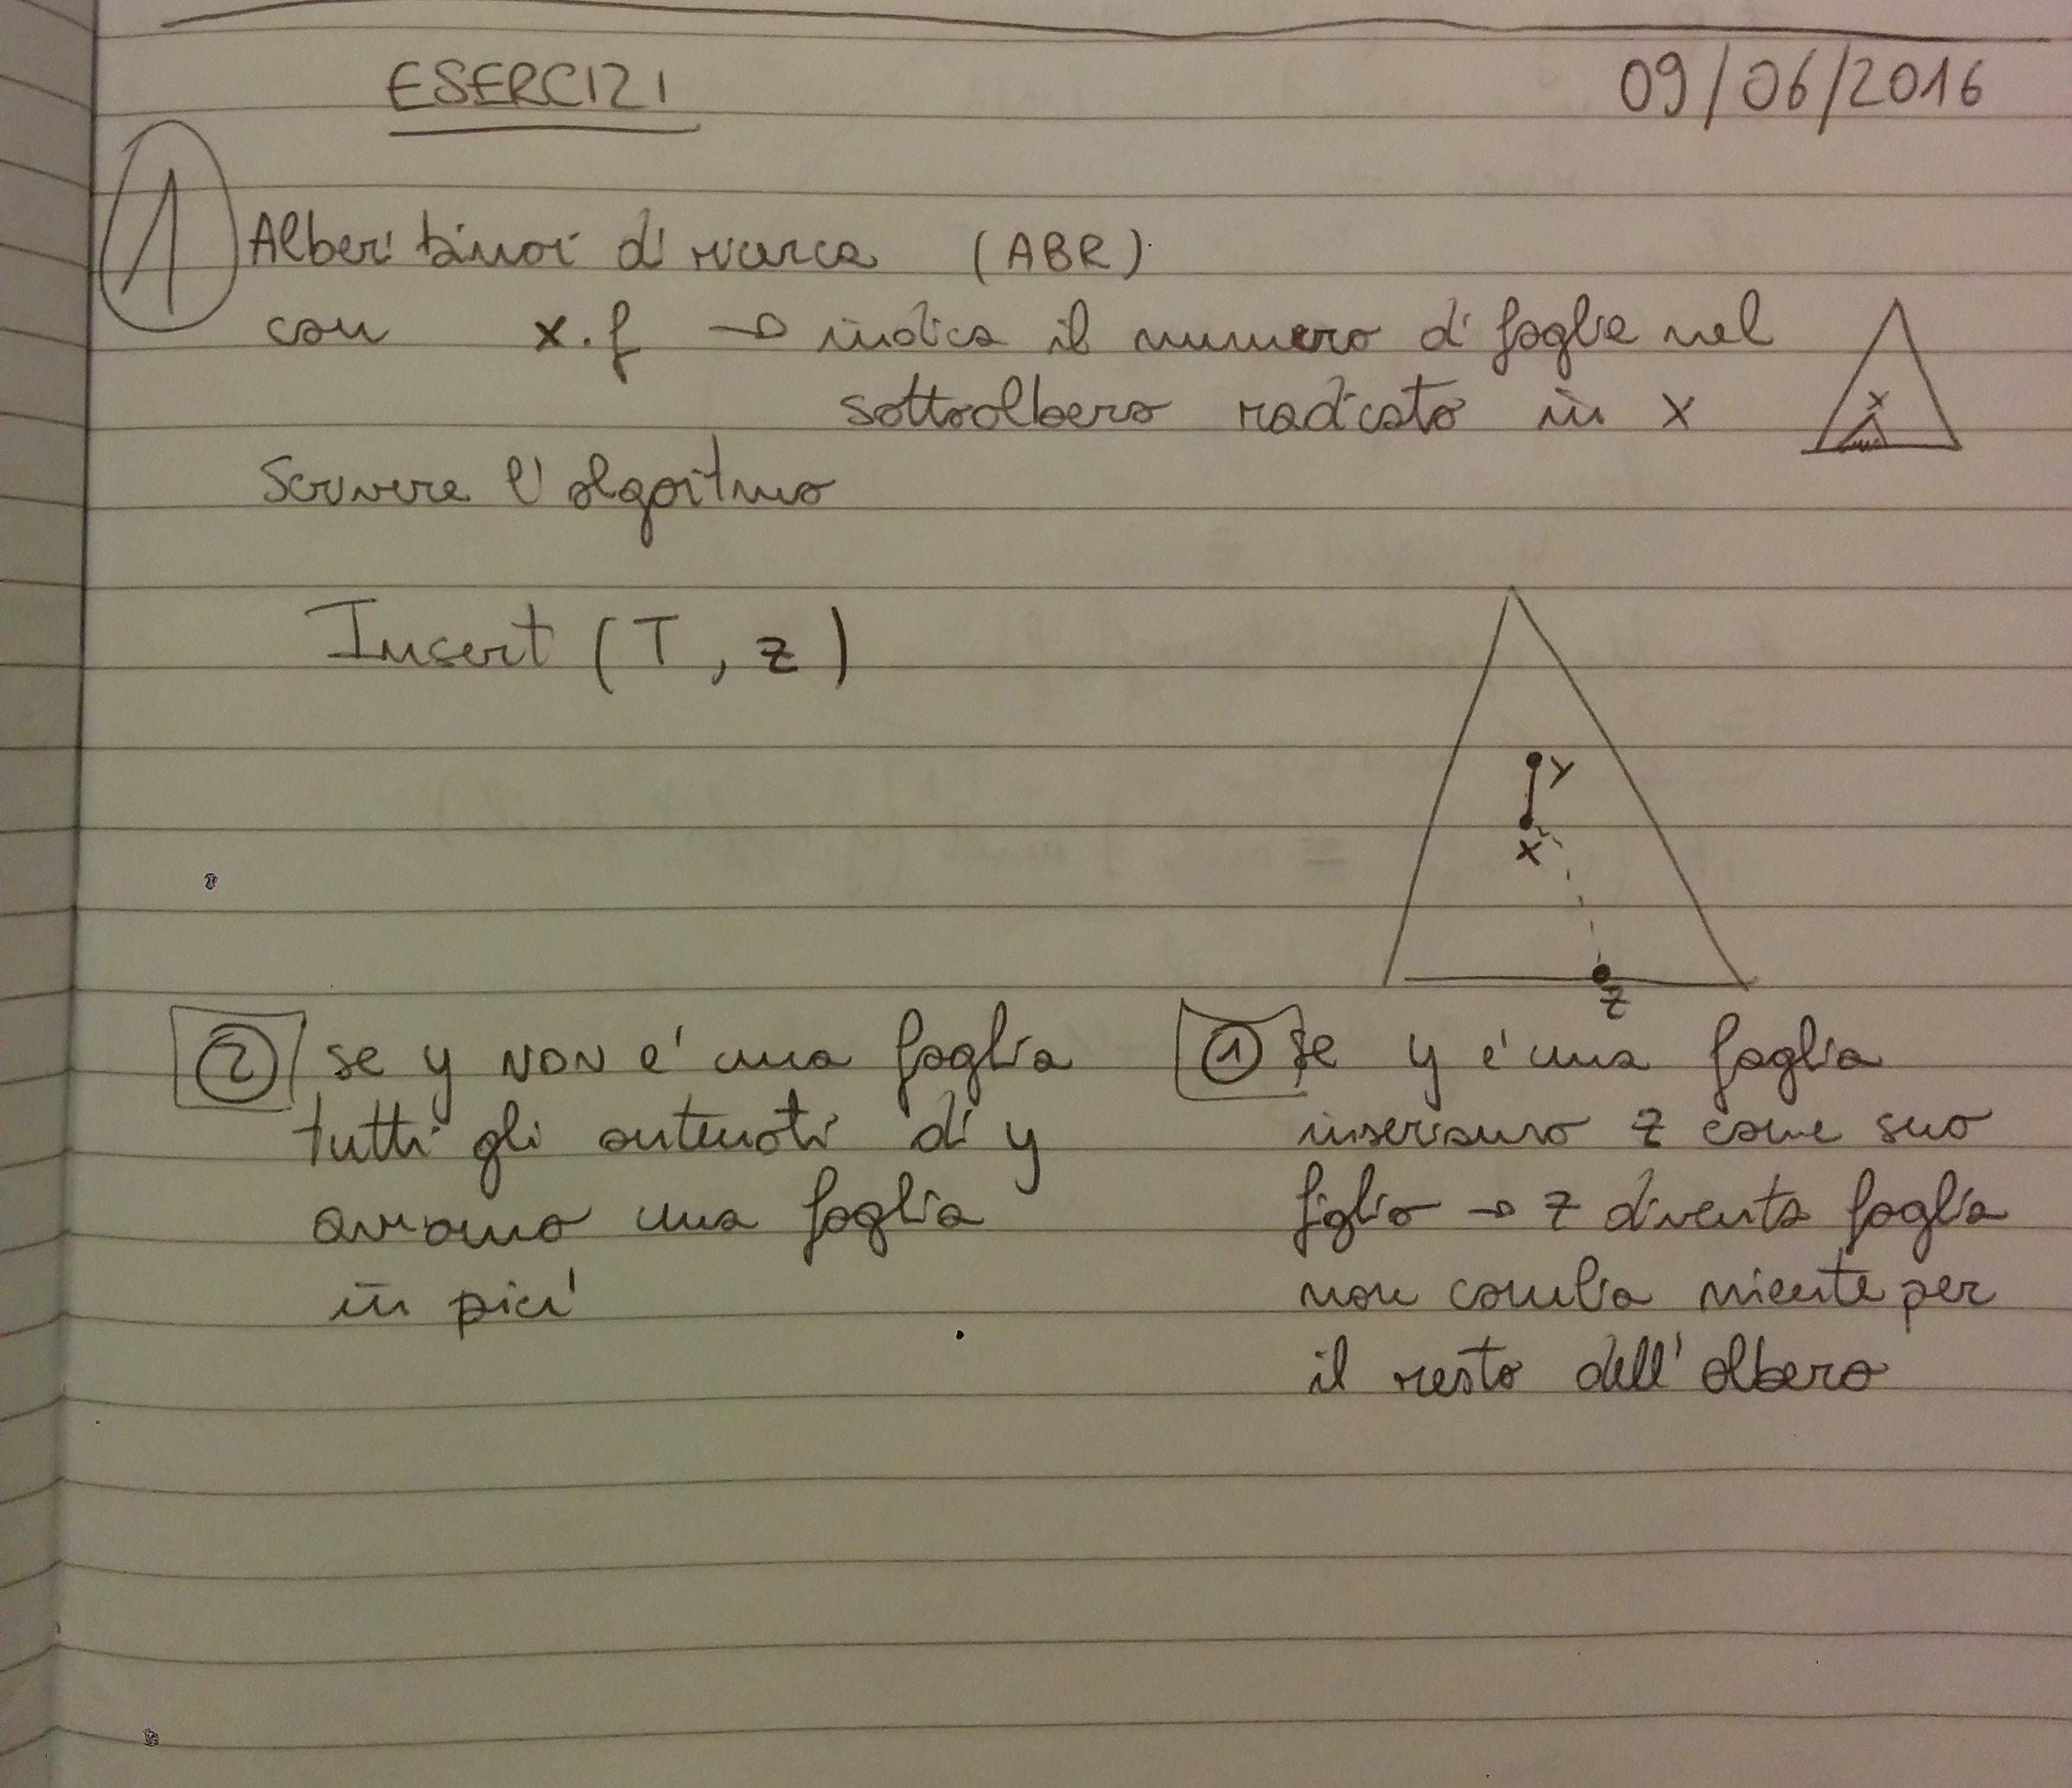 ESERCIZI 09/06/2016
1 Alberi binari di ricerca (ABR)
con x.f → indica il numero di foglie nel
sottoalbero radicato in x
x
Scrivere l'algoritmo
Insert (T, z)
y
x
z
2 se y NON e' una foglia
tutti gli antenati di y
avranno una foglia
in piu'
1 se y e' una foglia
inseriamo z come suo
figlio → z diventa foglia
non cambia niente per
il resto dell'albero